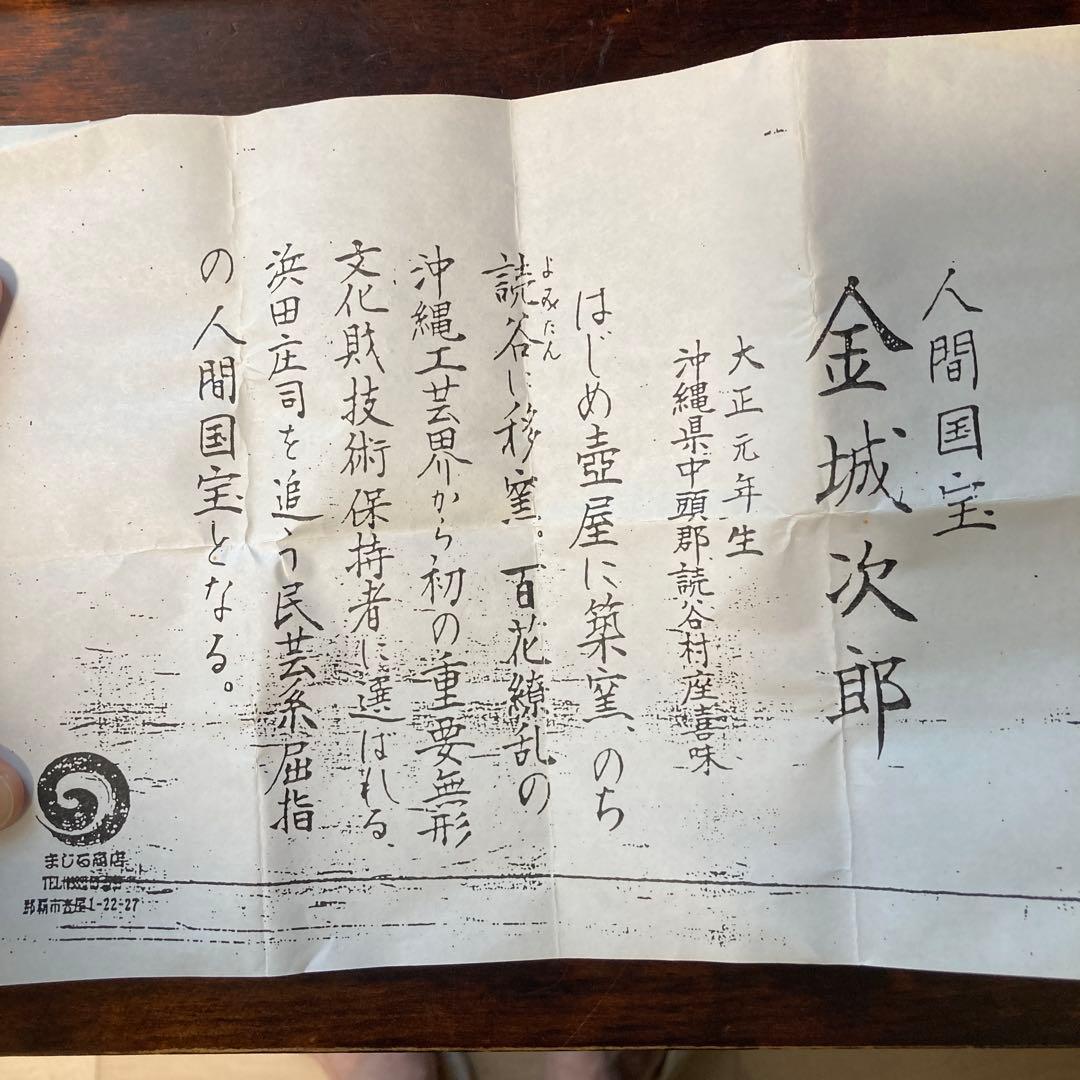 人間国宝
金城次郎
大正元年生
沖縄県中頭郡読谷村座喜味
はじめ壺屋に築窯、のち
読谷に移窯。百花繚乱の
よみたん
沖縄工芸界から初の重要無形
文化財技術保持者に選ばれる
浜田庄司を追う民芸系屈指
の人間国宝となる。
まじる商店
TEL
那覇市壺屋1-22-27